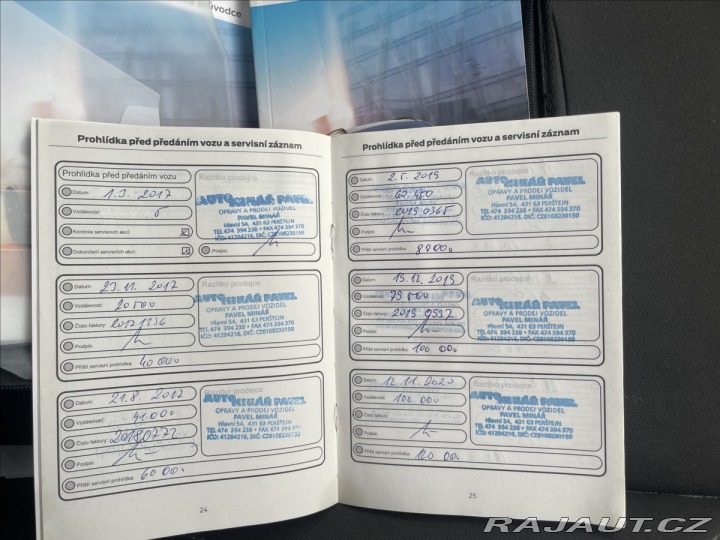 ůvodce
Prohlídka před předáním vozu a servisní záznam
Prohlídka před předáním vozu
Datum: 1.3. 2017
Vzdálenost: 0
Kontrola servisních akcí:
Dokončení servisních akcí:
Razítko prodejce
AUTO MINÁŘ PAVEL
OPRAVY A PRODEJ VOZIDEL
PAVEL MINÁŘ
Hlavní 54, 431 63 PERŠTEJN
TEL 474 394 238 • FAX 474 394 370
IČO: 41284216, DIČ: CZ6108230150
Podpis:
Datum: 23.11. 2017
Vzdálenost: 20 500
Číslo faktury: 20171336
Podpis:
Příští servisní prohlídka: 40 000
AUTO MINÁŘ PAVEL
OPRAVY A PRODEJ VOZIDEL
PAVEL MINÁŘ
Hlavní 54, 431 63 PERŠTEJN
TEL 474 394 238 • FAX 474 394 370
IČO: 41284216, DIČ: CZ6108230150
Datum: 21.8. 2017
Vzdálenost: 41.000
Číslo faktury:
Podpis:
Příští servisní prohlídka: 60 000
Razítko prodejce
AUTO MINÁŘ PAVEL
OPRAVY A PRODEJ VOZIDEL
PAVEL MINÁŘ
Hlavní 54, 431 63 PERŠTEJN
TEL 474 394 238 • FAX 474 394 370
IČO: 41284216, DIČ: CZ6108230150
24
Prohlídka před předáním vozu a servisní záznam
Datum: 2.5. 2019
Vzdálenost:
Číslo faktury:
Podpis:
Příští servisní prohlídka:
Razítko prodejce
AUTO MINÁŘ PAVEL
OPRAVY A PRODEJ VOZIDEL
PAVEL MINÁŘ
Hlavní 54, 431 63 PERŠTEJN
TEL 474 394 238 • FAX 474 394 370
IČO: 41284216, DIČ: CZ6108230150
Datum: 19.12. 2019
Vzdálenost: 79 500
Číslo faktury: 2019 0937
Podpis:
Příští servisní prohlídka: 100 000
Razítko prodejce
AUTO MINÁŘ PAVEL
OPRAVY A PRODEJ VOZIDEL
PAVEL MINÁŘ
Hlavní 54, 431 63 PERŠTEJN
TEL 474 394 238 • FAX 474 394 370
IČO: 41284216, DIČ: CZ6108230150
Datum: 12.11.2020
Vzdálenost: 100 000
Číslo faktury:
Podpis:
Příští servisní prohlídka: 120 000
Razítko prodejce
AUTO MINÁŘ PAVEL
OPRAVY A PRODEJ VOZIDEL
PAVEL MINÁŘ
Hlavní 54, 431 63 PERŠTEJN
TEL 474 394 238 • FAX 474 394 370
IČO: 41284216, DIČ: CZ6108230150
25
RAJAUT.CZ